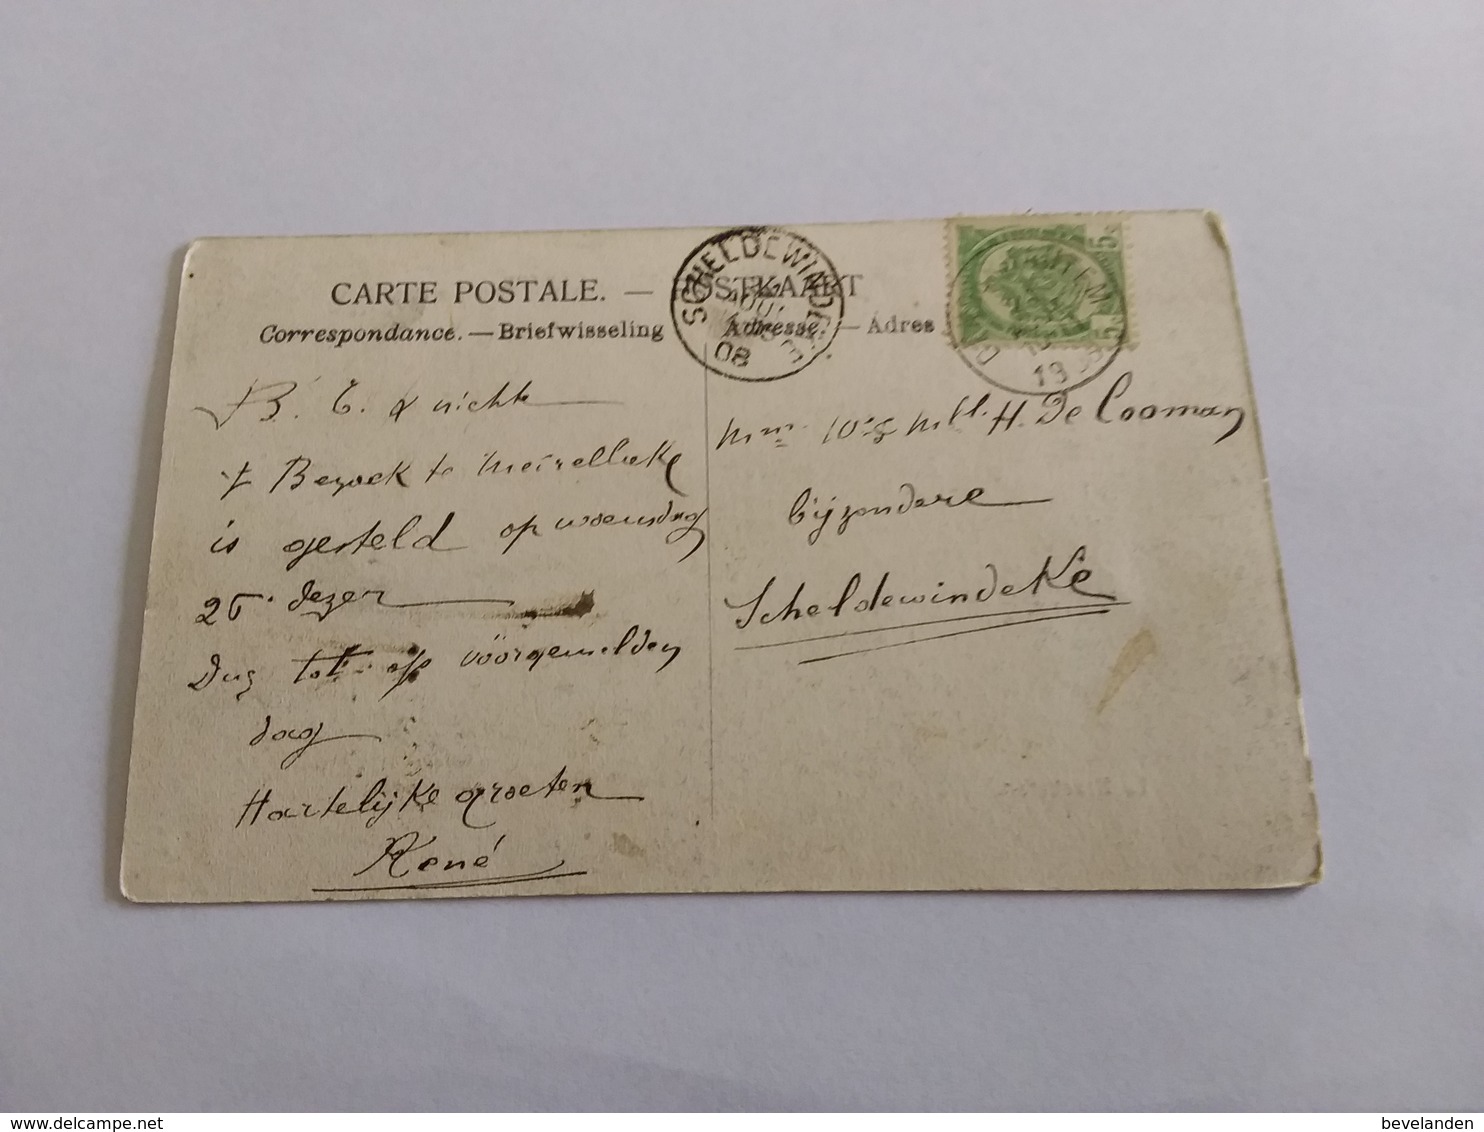 CARTE POSTALE. — POSTKAART
Correspondance. — Briefwisseling
Adresse. — Adres
SCHELDEWINDEKE
AOUT
08
19
5 5
B. T. & nichte
't Bezoek te Meirelbeke
is gesteld op woensdag
26 dezer
Dus tot op vöörgemelden
dag
Hartelijke groeten
René
Mme Wve & Mlle H. De Cooman
bijzondere
Scheldewindeke
bevelanden
delcampe.net